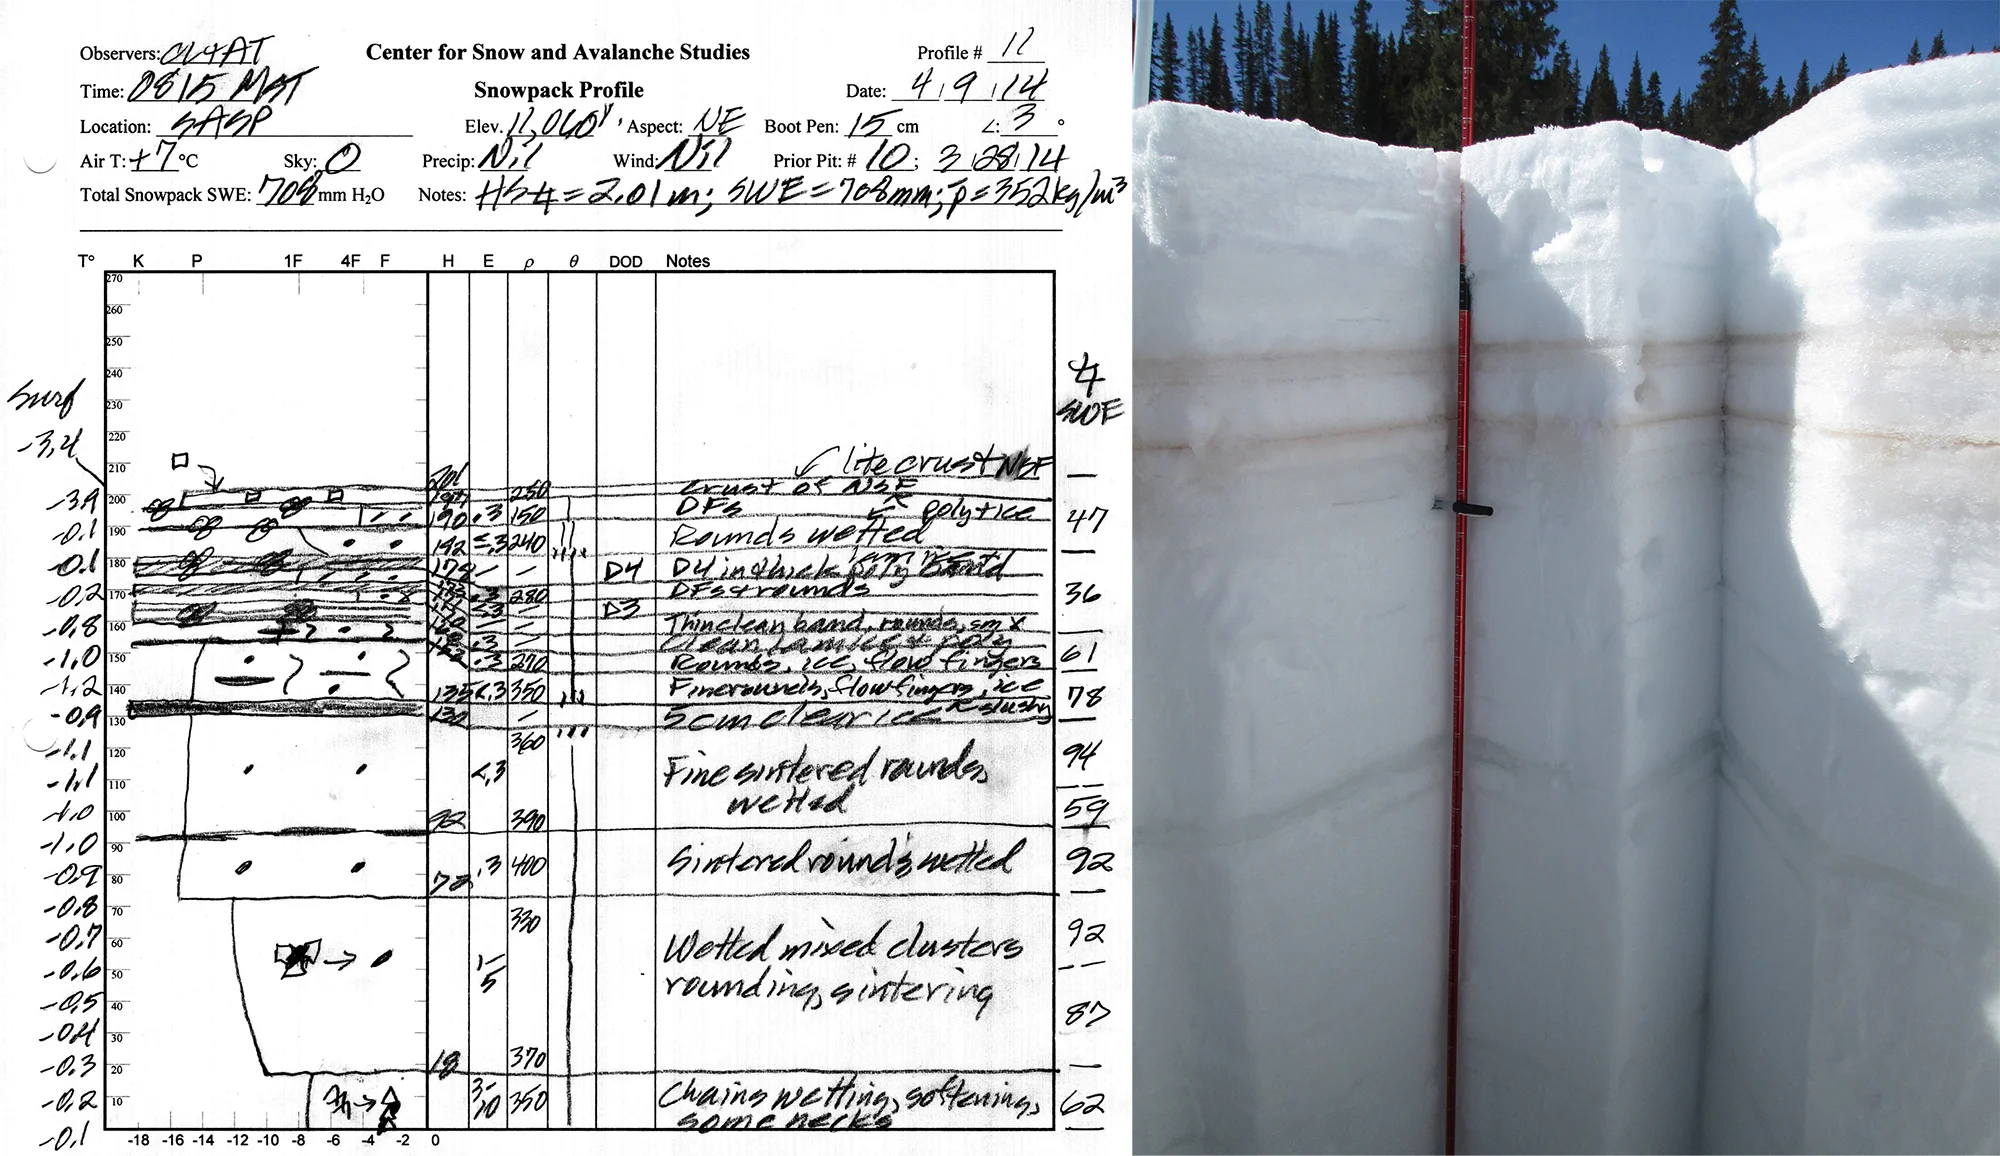 Observers: Center for Snow and Avalanche Studies Profile # 11
Time: 0815 MST Snowpack Profile Date: 4/9/14
Location: SASP Elev. 11,060' Aspect: NE Boot Pen: 15 cm ∠: 3 °
Air T: +7 °C Sky: 0 Precip: Nil Wind: Nil Prior Pit: # 10; 3/28/14
Total Snowpack SWE: 708 mm H2O Notes: = 2.01 m; SWE = 708 mm; ρ̄ = 352 kg/m³
T° K P 1F 4F F H E ρ θ DOD Notes
270
260
250
240
Surf 230 SWE
-3.4 220
210 lite crust NSF
201 250 crust of NSF
-3.9 200 DFs
190 .3 150 poly + ice 47
-0.1 190 192 240 Rounds wetted
-0.1 180 179 D4 D4 in thick poly band
-0.2 170 .3 280 DFs + rounds 36
D3
-0.8 160 Thin clean band, rounds, sm
-1.0 150 .3 270 Rounds, ice, flow fingers 61
-1.2 140 135 <.3 350 Fine rounds, flow fingers, ice 78
slushy
-0.9 130 130 5cm clear ice
-1.1 120 360 94
-1.1 110 <.3 Fine sintered rounds,
-1.0 100 92 390 wetted 59
-1.0 90
-0.9 80 72 .3 400 Sintered rounds wetted 92
-0.8 70 330
-0.7 60 Wetted mixed clusters 92
-0.6 50 1-5 rounding, sintering
-0.5 40 87
-0.4 30
-0.3 20 18 370
-0.2 10 3-10 350 Chains wetting, softening, 62
-0.1 some necks
-18 -16 -14 -12 -10 -8 -6 -4 -2 0